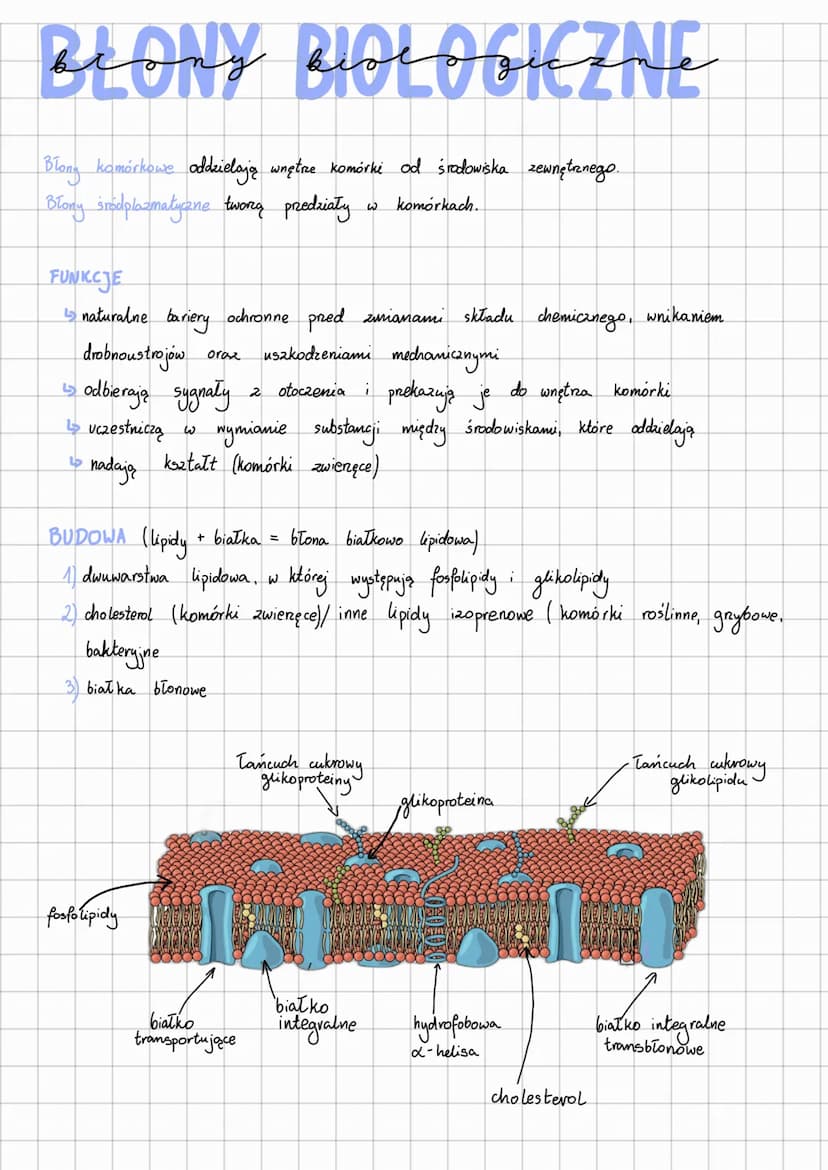 BŁONY BIOLOGICZNE
błony biologiczne
Błony komórkowe oddzielają wnętrze komórki od środowiska zewnętrznego.
Błony śródplazmatyczne tworzą przedziały w komórkach.
FUNKCJE
↳ naturalne bariery ochronne przed zmianami składu chemicznego, wnikaniem
drobnoustrojów oraz uszkodzeniami mechanicznymi
↳ odbierają sygnały z otoczenia i przekazują je do wnętrza komórki
↳ uczestniczą w wymianie substancji między środowiskami, które oddzielają
↳ nadają kształt (komórki zwierzęce)
BUDOWA (lipidy + białka = błona białkowo lipidowa)
1) dwuwarstwa lipidowa, w której występują fosfolipidy i glikolipidy
2) cholesterol (komórki zwierzęce)/ inne lipidy izoprenowe (komórki roślinne, grzybowe,
bakteryjne
3) białka błonowe
łańcuch cukrowy
glikoproteiny
glikoproteina
łańcuch cukrowy
glikolipidu
fosfolipidy
białko
transportujące
białko
integralne
hydrofobowa
α-helisa
białko integralne
transbłonowe
cholesterol